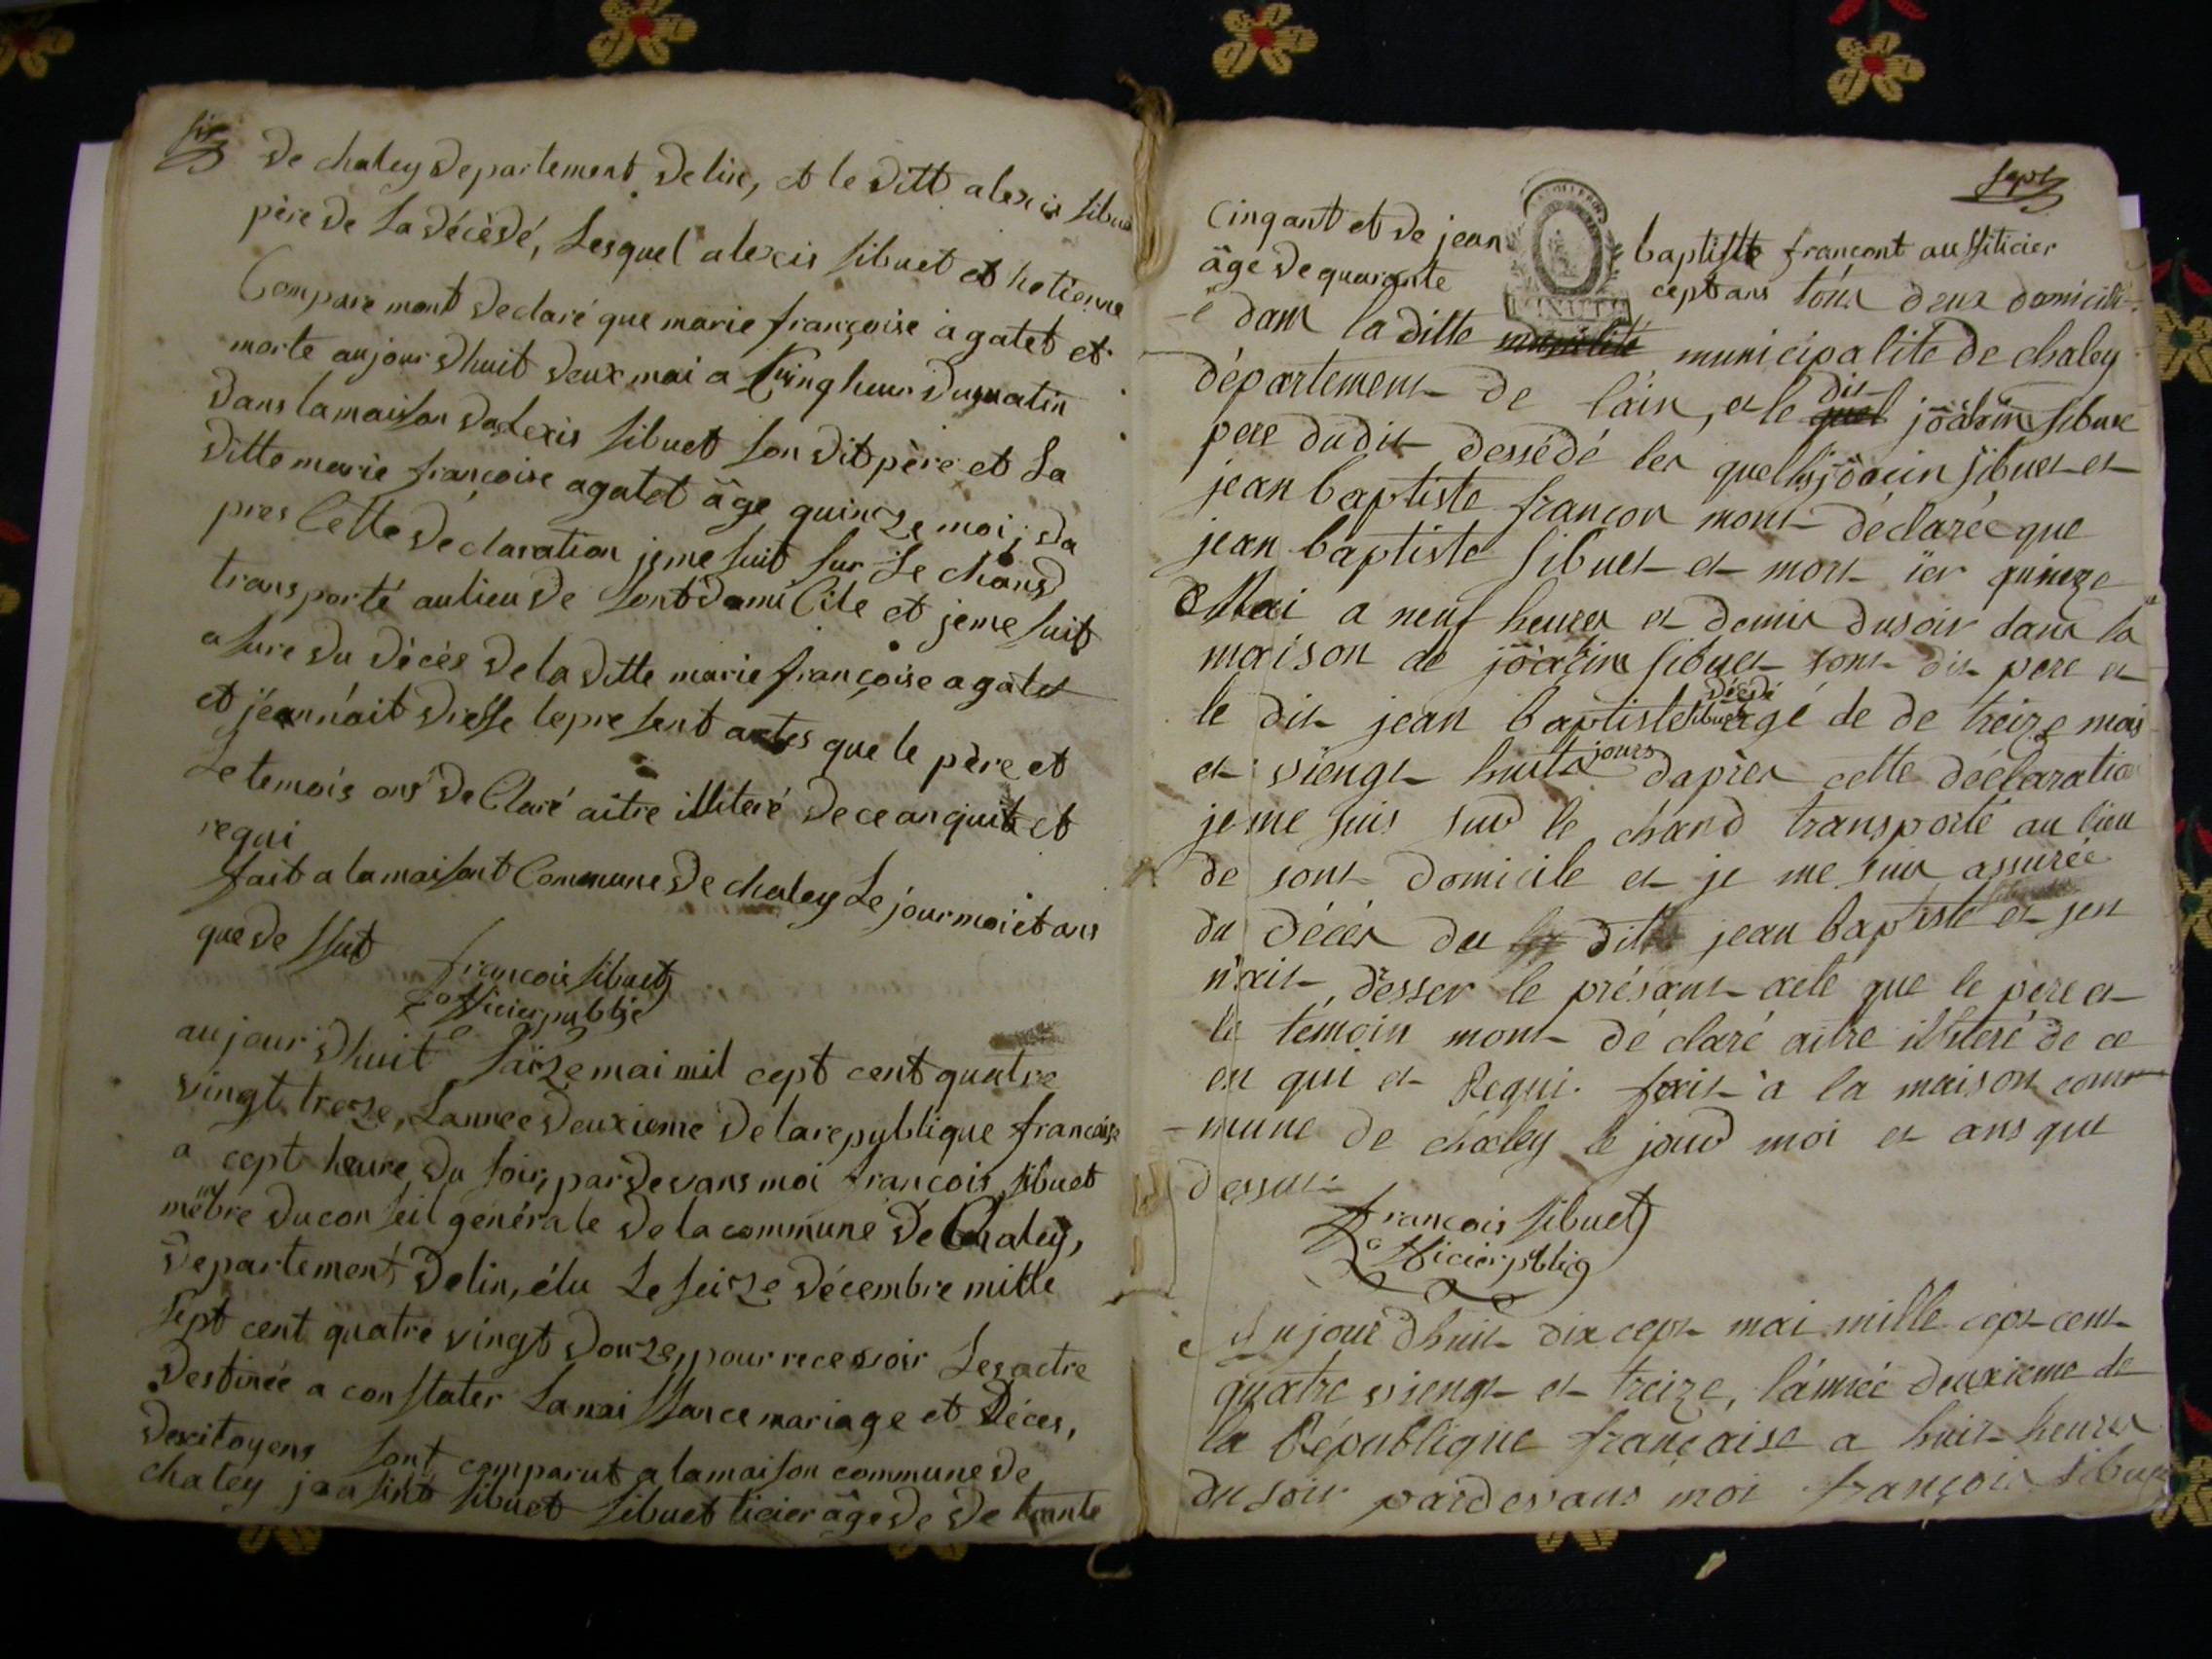 six
de chaley departement de lin, et le ditt alexis sibuet
père de la décèdé, Lesquel alexis sibuet et hetienne
Compare mont declaré que marie françoise agatet et
morte aujour dhuit deux mai a cinq heur du matin
dans la maison dalexis sibuet son dit père et la
ditte marie françoise agatet âge quinze moi, da
pres Cette declaration je me suit sur le chand
transporté au lieu de sont domi Cile et je me suit
a sure du décès de la ditte marie françoise agatet
et jéan nait dresse le presentt actes que le père et
Le temois ons de Claré aitre illiteré de ce anquit et
requi
fait a la maisont Commune de chaley Le jour moi et ans
que de ssut
françois sibuet
officier public
aujour dhuit saize mai mil cept cent quatre
vingt treze, Lannee deuxieme de la republique française
a cept heure du soir, par devans moi françois sibuet
mëmbre du conseil générale de la commune de Chaley,
departement de lin, élu Le seize décembre mille
sept cent quatre vingt douze, pour recevoir Les actre
destinée a constater La nai ssance mariage et Déces,
des citoyens sont comparut a la maison commune de
chaley jaasint sibuet sibuet ticier âge de de trante
sept
cinqant et de jean baptiste françont au ssiticier
âge de quarante cept ans tóus deux domicili-
-é dans la ditte municipalité de chaley
département de lain, et le dit joàsin sibuet
pere du dit dessédé les quells joacin sibuet et
jean baptiste françon mont déclarée que
jean baptiste sibuet et mort ier quinze
Mai a neuf heures et demis du soir dans la
maison de joàsin sibuet sont dit pere et
le dit jean baptiste sibuet décédé agé de de treize mois
et viengt huits jours dapres cette déclaratio
je me suis sud le chand transporté au lieu
de sont domicile et je me suis assurée
du décés du dit jean baptiste et jen
n'ait desser le présant acte que le pere et
le témoin mont dé claré aitre illiteré de ce
en qui et Requi. fait à la maison com
-mune de chaley le joud moi et ans que
dessus
françois sibuet
officier pblicq
Aujour dhuit dix cept mai mille cept cent
quatre viengt et treize, l'année deuxieme de
la République française a huit heures
du soir pardevans moi françois sibuet